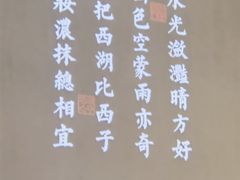 水光瀲灩晴方好
色空蒙雨亦奇
把西湖比西子
妝濃抹總相宜